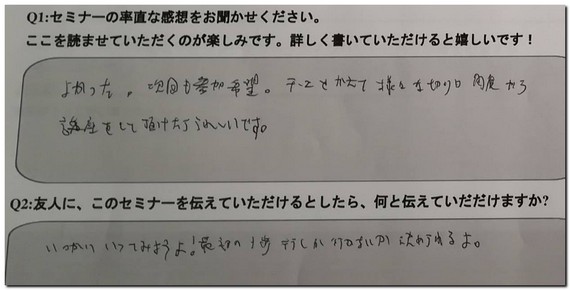 Q1:セミナーの率直な感想をお聞かせください。
ここを読ませていただくのが楽しみです。詳しく書いていただけると嬉しいです！
よかった。次回も参加希望。テーマをかえて様々な切り口 角度から
講座をして頂けたらうれしいです。
Q2:友人に、このセミナーを伝えていただけるとしたら、何と伝えていだだけますか?
いってみようよ!最初の1歩 行くか行かないか決めれるよ。